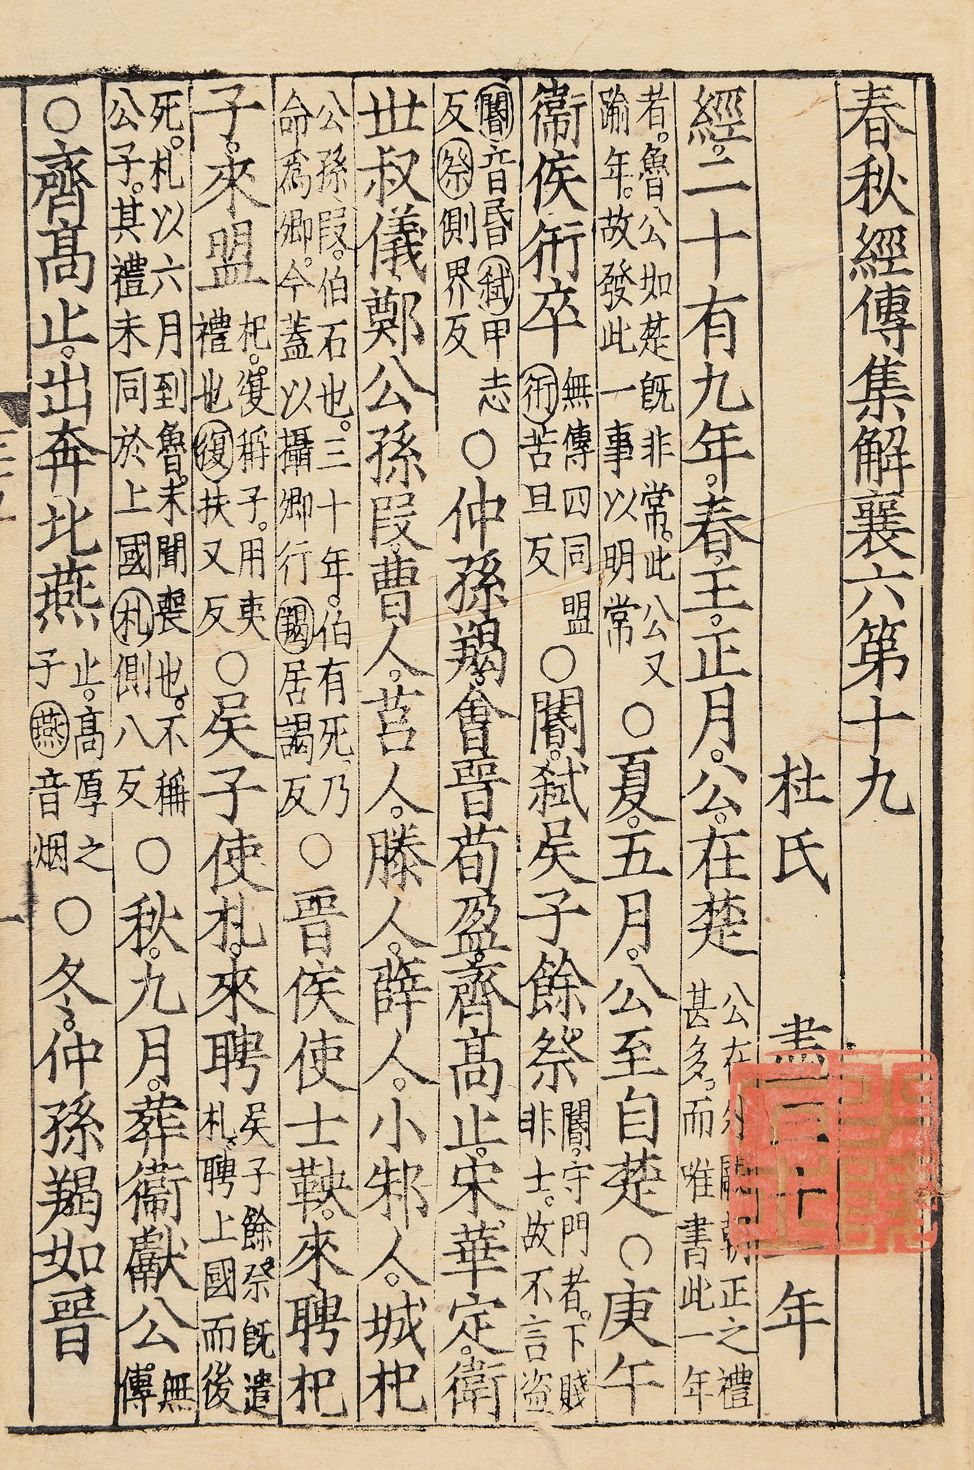 春秋經傳集解襄六第十九
杜氏 盡三十一年
經。二十有九年。春。王。正月。公。在楚公在外闕朝正之禮甚多。而唯書此一年
者。魯公如楚旣非常。此公又踰年。故發此一事以明常○夏。五月。公至自楚○庚午
衞侯衎卒無傳四同盟衎苦旦反○閽。弒吳子餘祭。閽。守門者。下賤非士。故不言盜
閽音昬弒申志反祭側界反○仲孫羯。會晉荀盈。齊髙止。宋華定。衛
世叔儀鄭公孫叚曹人。莒人。滕人。薛人。小邾人。城杞
公孫叚。伯石也。三十年。伯有死。乃命爲卿。今蓋以攝卿行羯居謁反○晉侯使士鞅。來聘杞
子。來盟杞。復稱子。用夷禮也復扶又反○吳子使札。來聘吳子餘祭旣遣札聘上國而後
死。札以六月到魯。未聞喪也。不稱公子。其禮未同於上國札側八反○秋。九月。葬衞獻公無傳
○齊髙止。出奔北燕止。髙厚之子燕音烟○冬。仲孫羯如晉